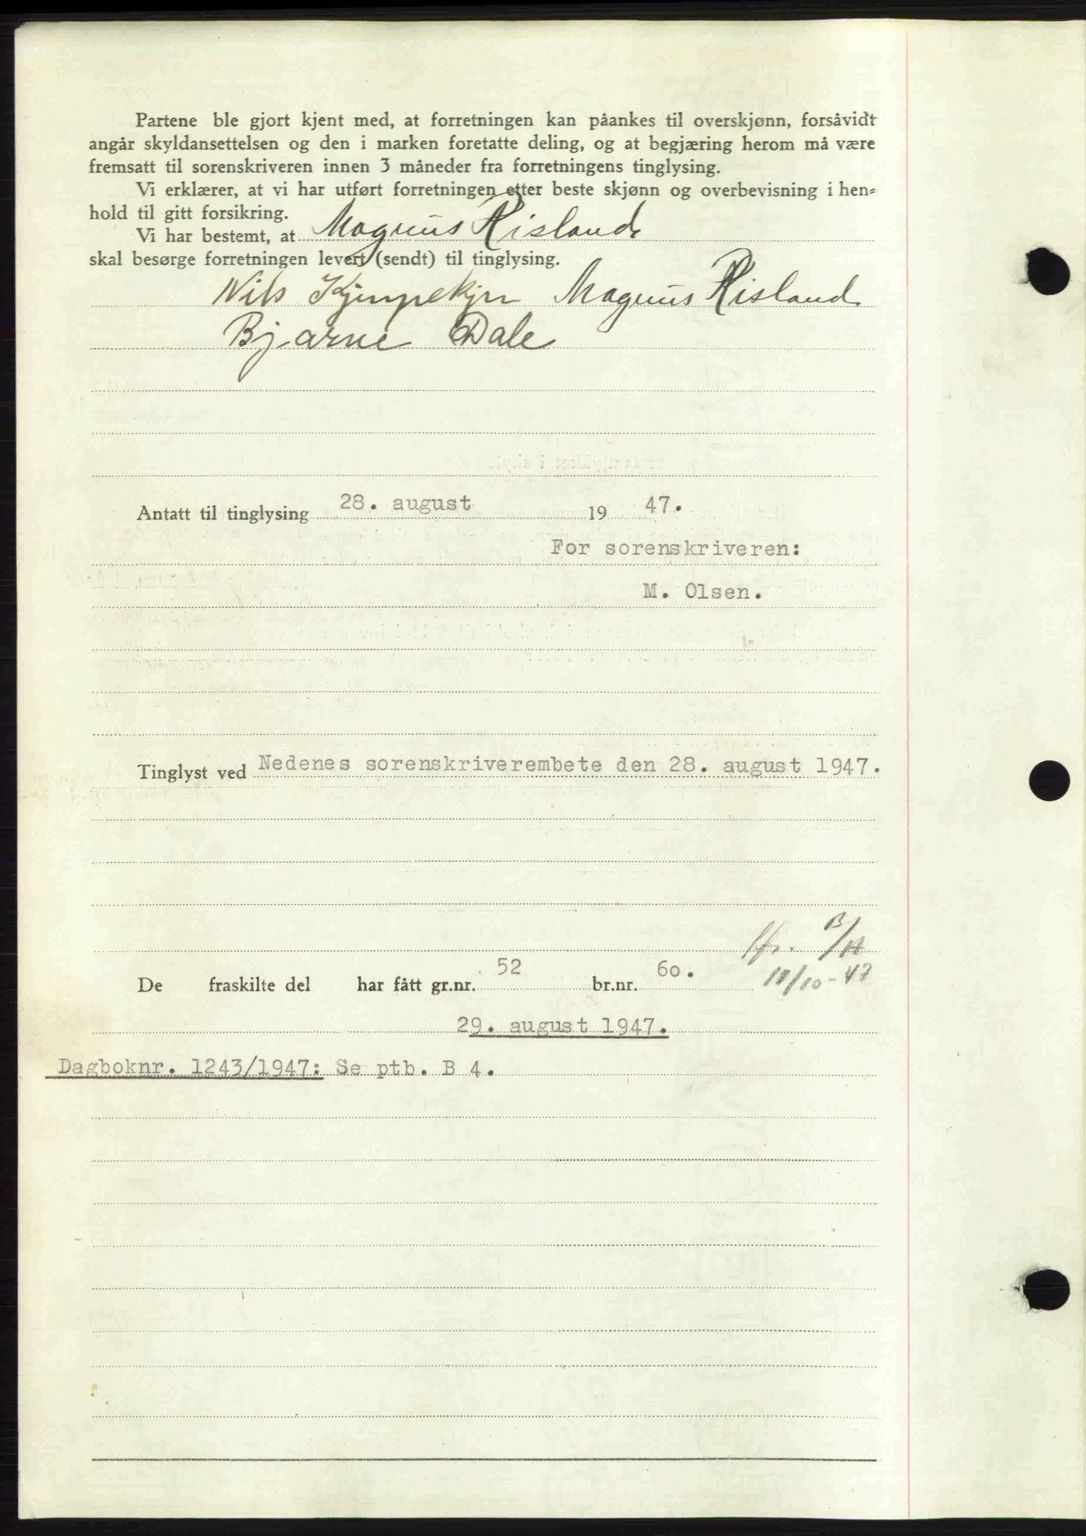 Partene ble gjort kjent med, at forretningen kan påankes til overskjønn, forsåvidt
angår skyldansettelsen og den i marken foretatte deling, og at begjæring herom må være
fremsatt til sorenskriveren innen 3 måneder fra forretningens tinglysing.
Vi erklærer, at vi har utført forretningen etter beste skjønn og overbevisning i hen=
hold til gitt forsikring.
Vi har bestemt, at Magnus Risland
skal besørge forretningen levert (sendt) til tinglysing.
Nils Magnus Risland
Bjarne Dale
Antatt til tinglysing 28. august 19 47.
For sorenskriveren:
M. Olsen.
Tinglyst ved Nedenes sorenskriverembete den 28. august 1947.
De fraskilte del har fått gr.nr. 52 br.nr. 60.
11/10-47
29. august 1947.
Dagboknr. 1243/1947: Se ptb. B 4.